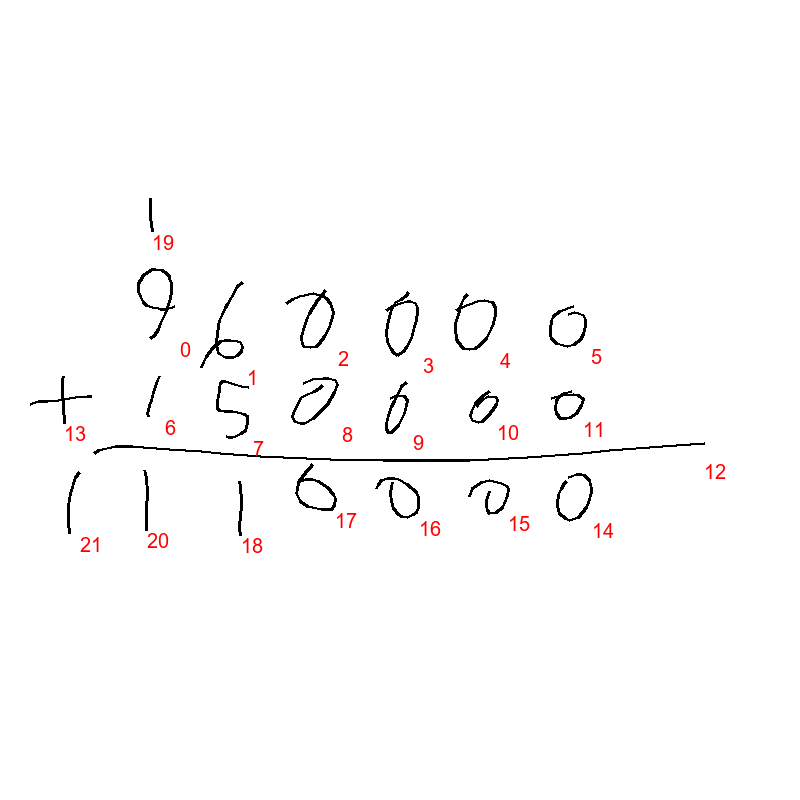 1
19
960000
0 1 2 3 4 5
+ 150000
13 6 7 8 9 10 11
12
1110000
21 20 18 17 16 15 14